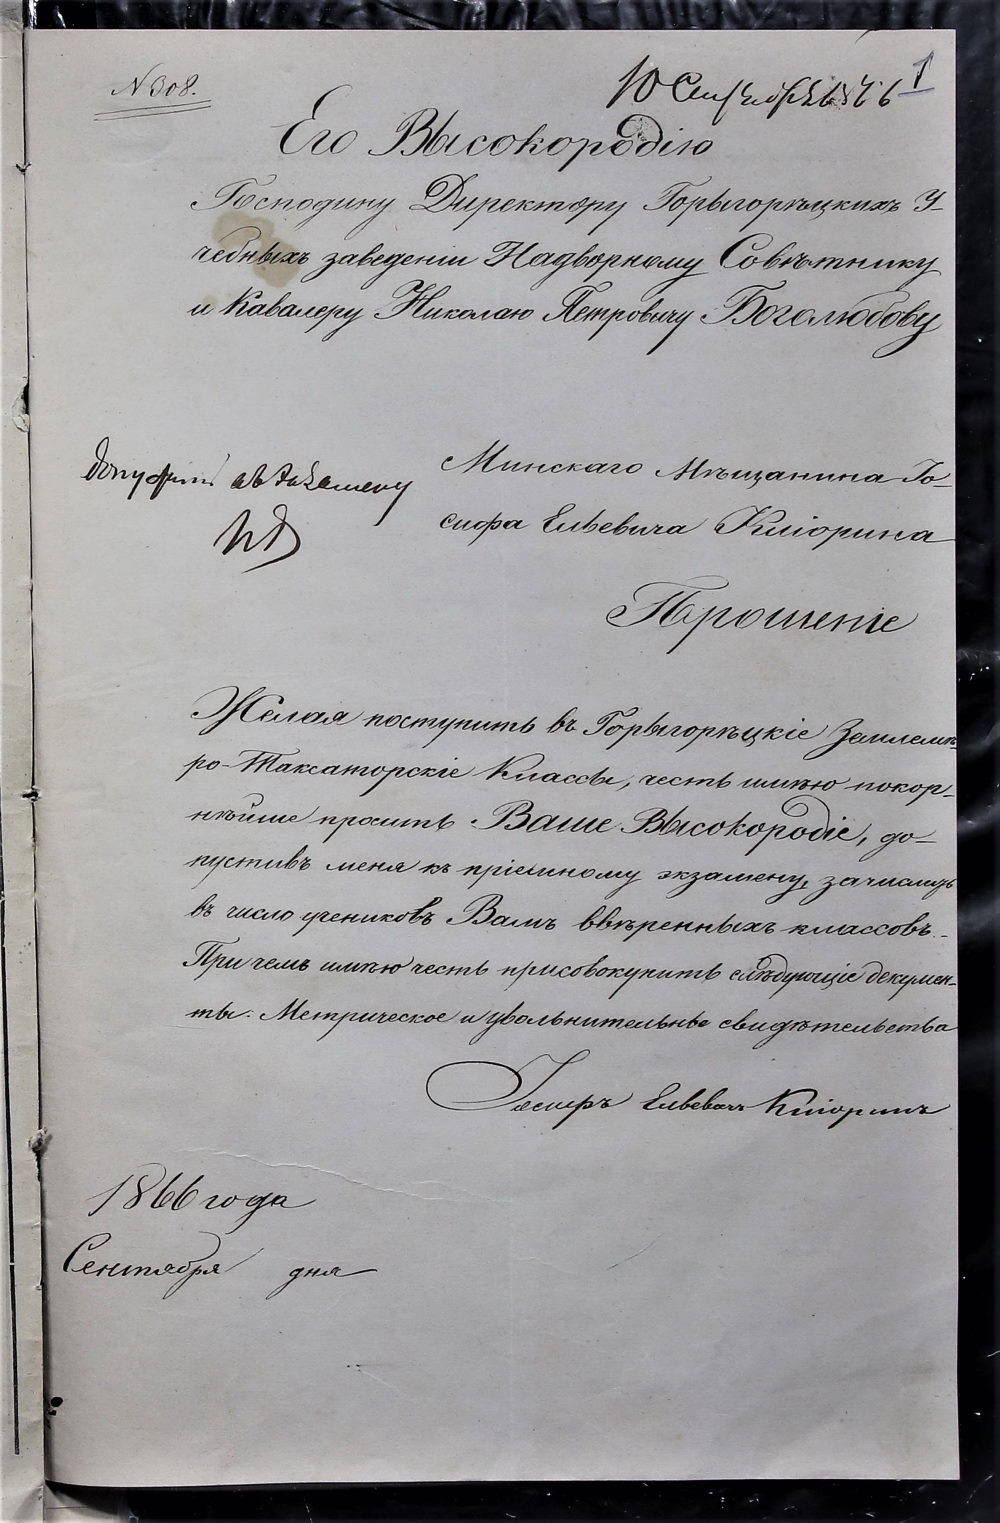 № 308.
10 Сентября 1866
1
Его Высокородію
Господину Директору Горыгорѣцкихъ У-
чебныхъ заведеніи Надворному Совѣтнику
и Кавалеру Николаю Петровичу Боголюбову
допустить къ экзамену
Минскаго Мѣщанина Іо-
сифа Ельевича Кліорина
Прошеніе
Желая поступить въ Горыгорѣцкіе Землемѣ-
ро-Таксаторскіе Классы, честь имѣю покор-
нѣйше просить Ваше Высокородіе, до-
пустивъ меня къ пріемному экзамену, зачислить
въ число учениковъ Вамъ ввѣренныхъ классовъ. -
При чемъ имѣю честь присовокупить слѣдующіе докумен-
ты: Метрическое и увольнительные свидѣтельства
Іосифъ Ельевичъ Кліоринъ
1866 года
Сентября дня